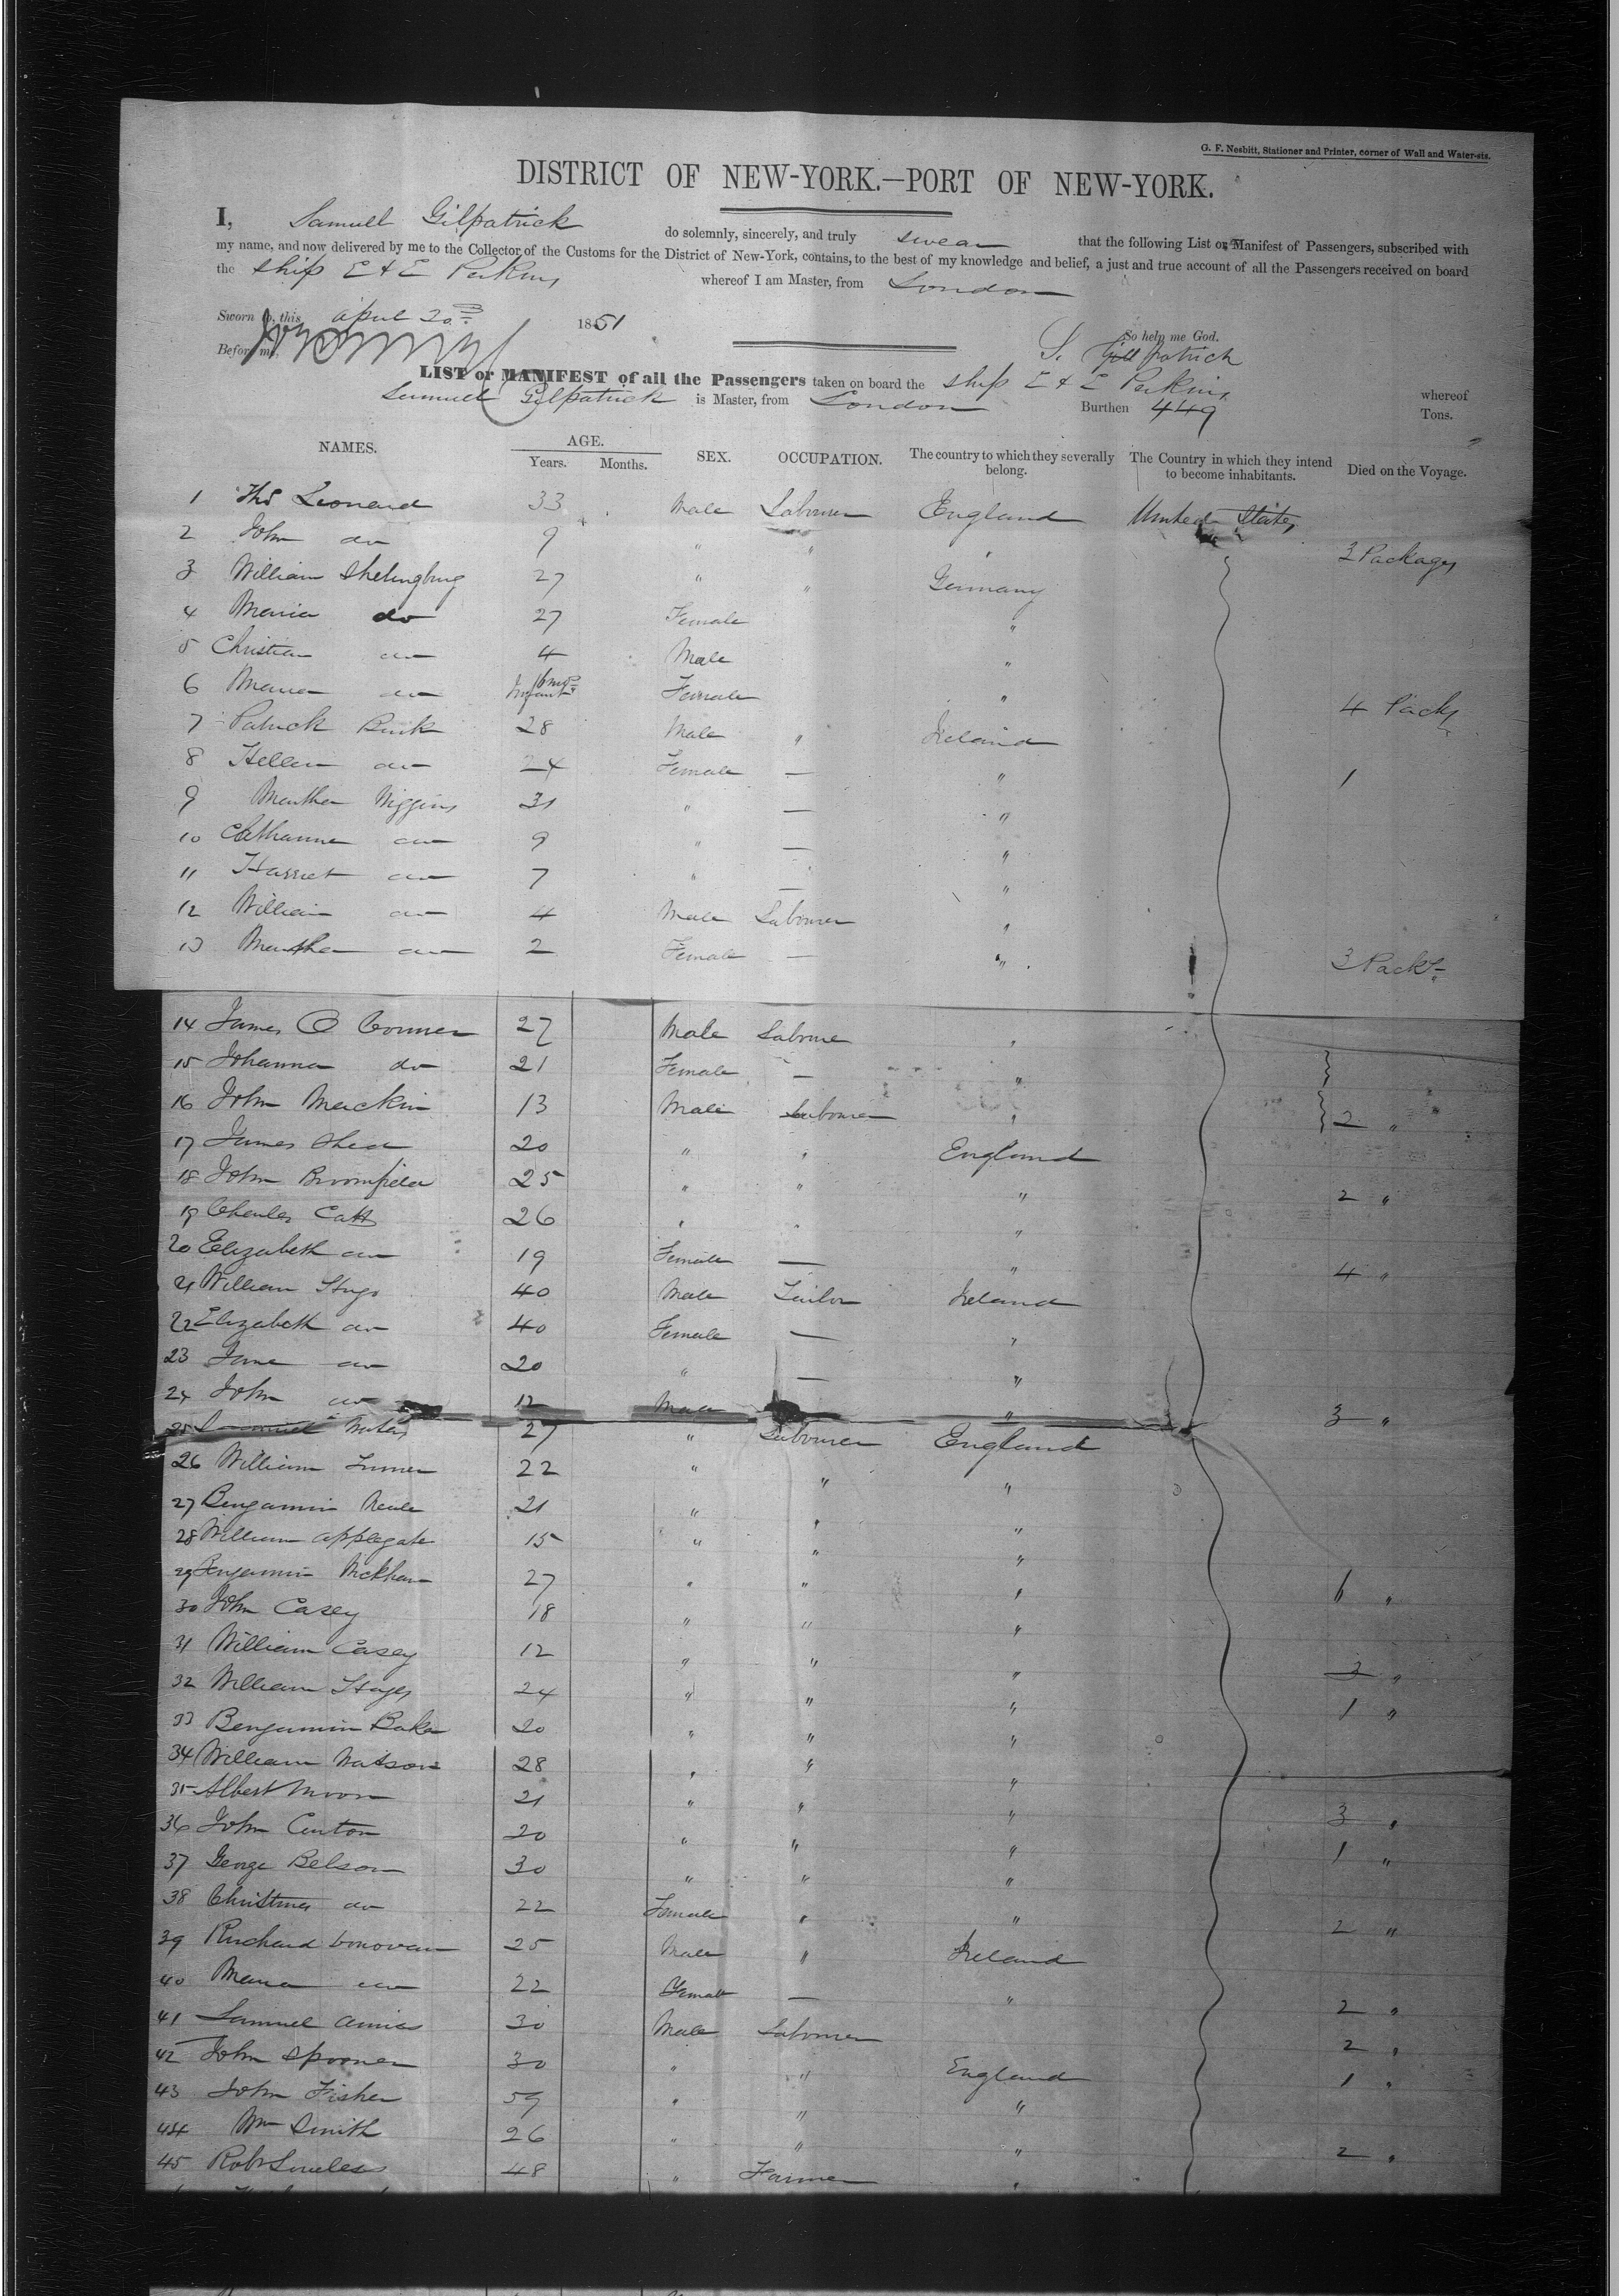 G. F. Nesbitt, Stationer and Printer, corner of Wall and Water-sts.
DISTRICT OF NEW-YORK.—PORT OF NEW-YORK.
I, Samuel Gilpatrick do solemnly, sincerely, and truly swear that the following List or Manifest of Passengers, subscribed with
my name, and now delivered by me to the Collector of the Customs for the District of New-York, contains, to the best of my knowledge and belief, a just and true account of all the Passengers received on board
the Ship E & E Perkins whereof I am Master, from London
Sworn to, this april 20 1851
So help me God.
Before me,
S. Gillpatrick
LIST or MANIFEST of all the Passengers taken on board the Ship E & E Perkins whereof
Samuel Gilpatrick is Master, from London Burthen 449 Tons.
NAMES. AGE. Years. Months. SEX. OCCUPATION. The country to which they severally belong. The Country in which they intend to become inhabitants. Died on the Voyage.
1 Thos Leonard 33 Male Labourer England United States
2 John do 9 " " " 3 Packages
3 William 27 " " Germany
4 Maria do 27 Female "
5 Christian do 4 Male "
6 Maria do Infant 6 mos Female " 4 Packs
7 Patrick Burk 28 Male " Ireland
8 Hellen do 24 Female — " 1
9 Martha Higgins 31 " — "
10 Catharine do 9 " — "
11 Harriet do 7 " — "
12 William do 4 Male Labourer "
13 Martha do 2 Female — " 3 Packs
14 James O Conner 27 Male Laboure "
15 Johanna do 21 Female — "
16 John Mackin 13 Male Labourer " 2 "
17 James Shea 20 " " England
18 John Bromfield 25 " " " 2 "
19 Charles Catt 26 " " "
20 Elizabeth do 19 Female — " 4 "
21 William 40 Male Tailor Ireland
22 Elizabeth do 40 Female — "
23 Jane do 20 " — "
24 John do 12 Male " 3 "
25 27 " Labourer England
26 William Turner 22 " " "
27 Bengamin Neale 21 " " "
28 William applegate 15 " " "
29 Bengamin 27 " " " 6 "
30 John Casey 18 " " "
31 William Casey 12 " " " 2 "
32 William Hayes 24 " " " 1 "
33 Bengamin Baker 20 " " "
34 William Watson 28 " " "
35 Albert Moon 21 " " " 3 "
36 John 20 " " " 1 "
37 George Belson 30 " " "
38 Christina do 22 Female " " 2 "
39 Richard Donovan 25 Male " Ireland
40 Maria do 22 Female — " 2 "
41 Samuel 30 Male Labourer 2 "
42 John Spooner 30 " " England 1 "
43 John Fisher 59 " " "
44 Wm Smith 26 " " " 2 "
45 Robt 48 " Farmer "